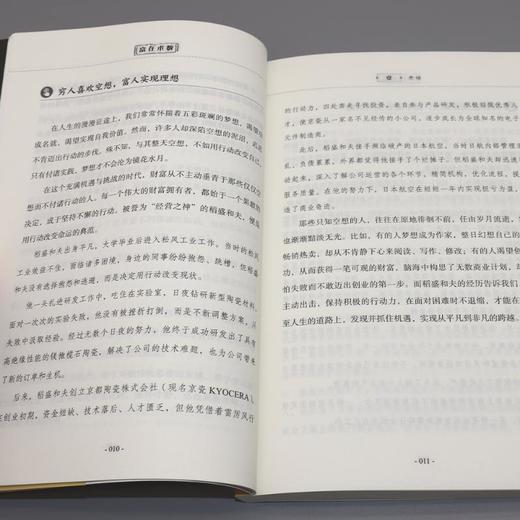 富在术数
穷人喜欢空想，富人实现理想
在人生的漫漫征途上，我们常常怀揣着五彩斑斓的梦想，渴望
成名就，渴望实现自我价值。然而，许多人却深陷空想的泥沼，
不肯迈出行动的步伐。殊不知，与其整天空想，不如用行动改变自己，
只有付诸实践，梦想才不会沦为镜花水月。
在这个充满机遇与挑战的时代，财富从不主动垂青于那些仅仅空
想而不付诸行动的人。每一个伟大的财富拥有者，都始于一个果断的
决定，成于坚持不懈的行动。被誉为“经营之神”的稻盛和夫，便是
用行动改变命运的典范。
稻盛和夫出身平凡，大学毕业后进入松风工业工作。当时的松风
工业效益不佳，面临诸多困境，身边的同事纷纷抱怨、跳槽，但稻盛
和夫没有选择抱怨和逃避，而是决定用行动改变现状。
他一头扎进研发工作中，吃住在实验室，日夜钻研新型陶瓷材料。
面对一次次的实验失败，他没有被挫折打倒，而是不断调整方案，从
失败中汲取经验。经过无数个日夜的努力，他终于成功研发出了具有
高绝缘性能的镁橄榄石陶瓷，解决了公司的技术难题，也为公司带来
了新的订单和生机。
后来，稻盛和夫创立京都陶瓷株式会社（现名京瓷 KYOCERA）。
创业初期，资金短缺、技术落后、人才匮乏，但他凭借着雷厉风行
- 010 -
壹
的行动力，四处奔走寻找投资，亲自参与产品研发，积极招揽优秀人
才，使京瓷从一家名不见经传的小公司，逐步成长为全球知名的电子
元件制造商。
此后，稻盛和夫接手濒临破产的日本航空，当时日航内部管理
乱，负债累累，外界都觉得他接手了个烂摊子。但稻盛和夫却迅速
动，深入了解公司运营的各个环节，精简机构，优化流程，提
服务质量。在他的努力下，日本航空在短短一年内实现扭亏为盈，
了商业奇迹。
那些只知空想的人，往往在原地徘徊不前，任由岁月流逝，
也渐渐黯淡无光。比如，有的人梦想成为作家，整日幻想自己
畅销热卖，却从不肯静下心来阅读、写作、修改；有的人渴望
从而获得一笔可观的财富，脑海中构思了无数商业计划，却
怕失败而不敢迈出创业的第一步。而稻盛和夫的经历告诉我们
主动出击，保持积极的行动力，在面对困难时不退缩，才能在
至人生的道路上，发现并抓住机遇，实现从平凡到非凡的跨越。
- 011 -